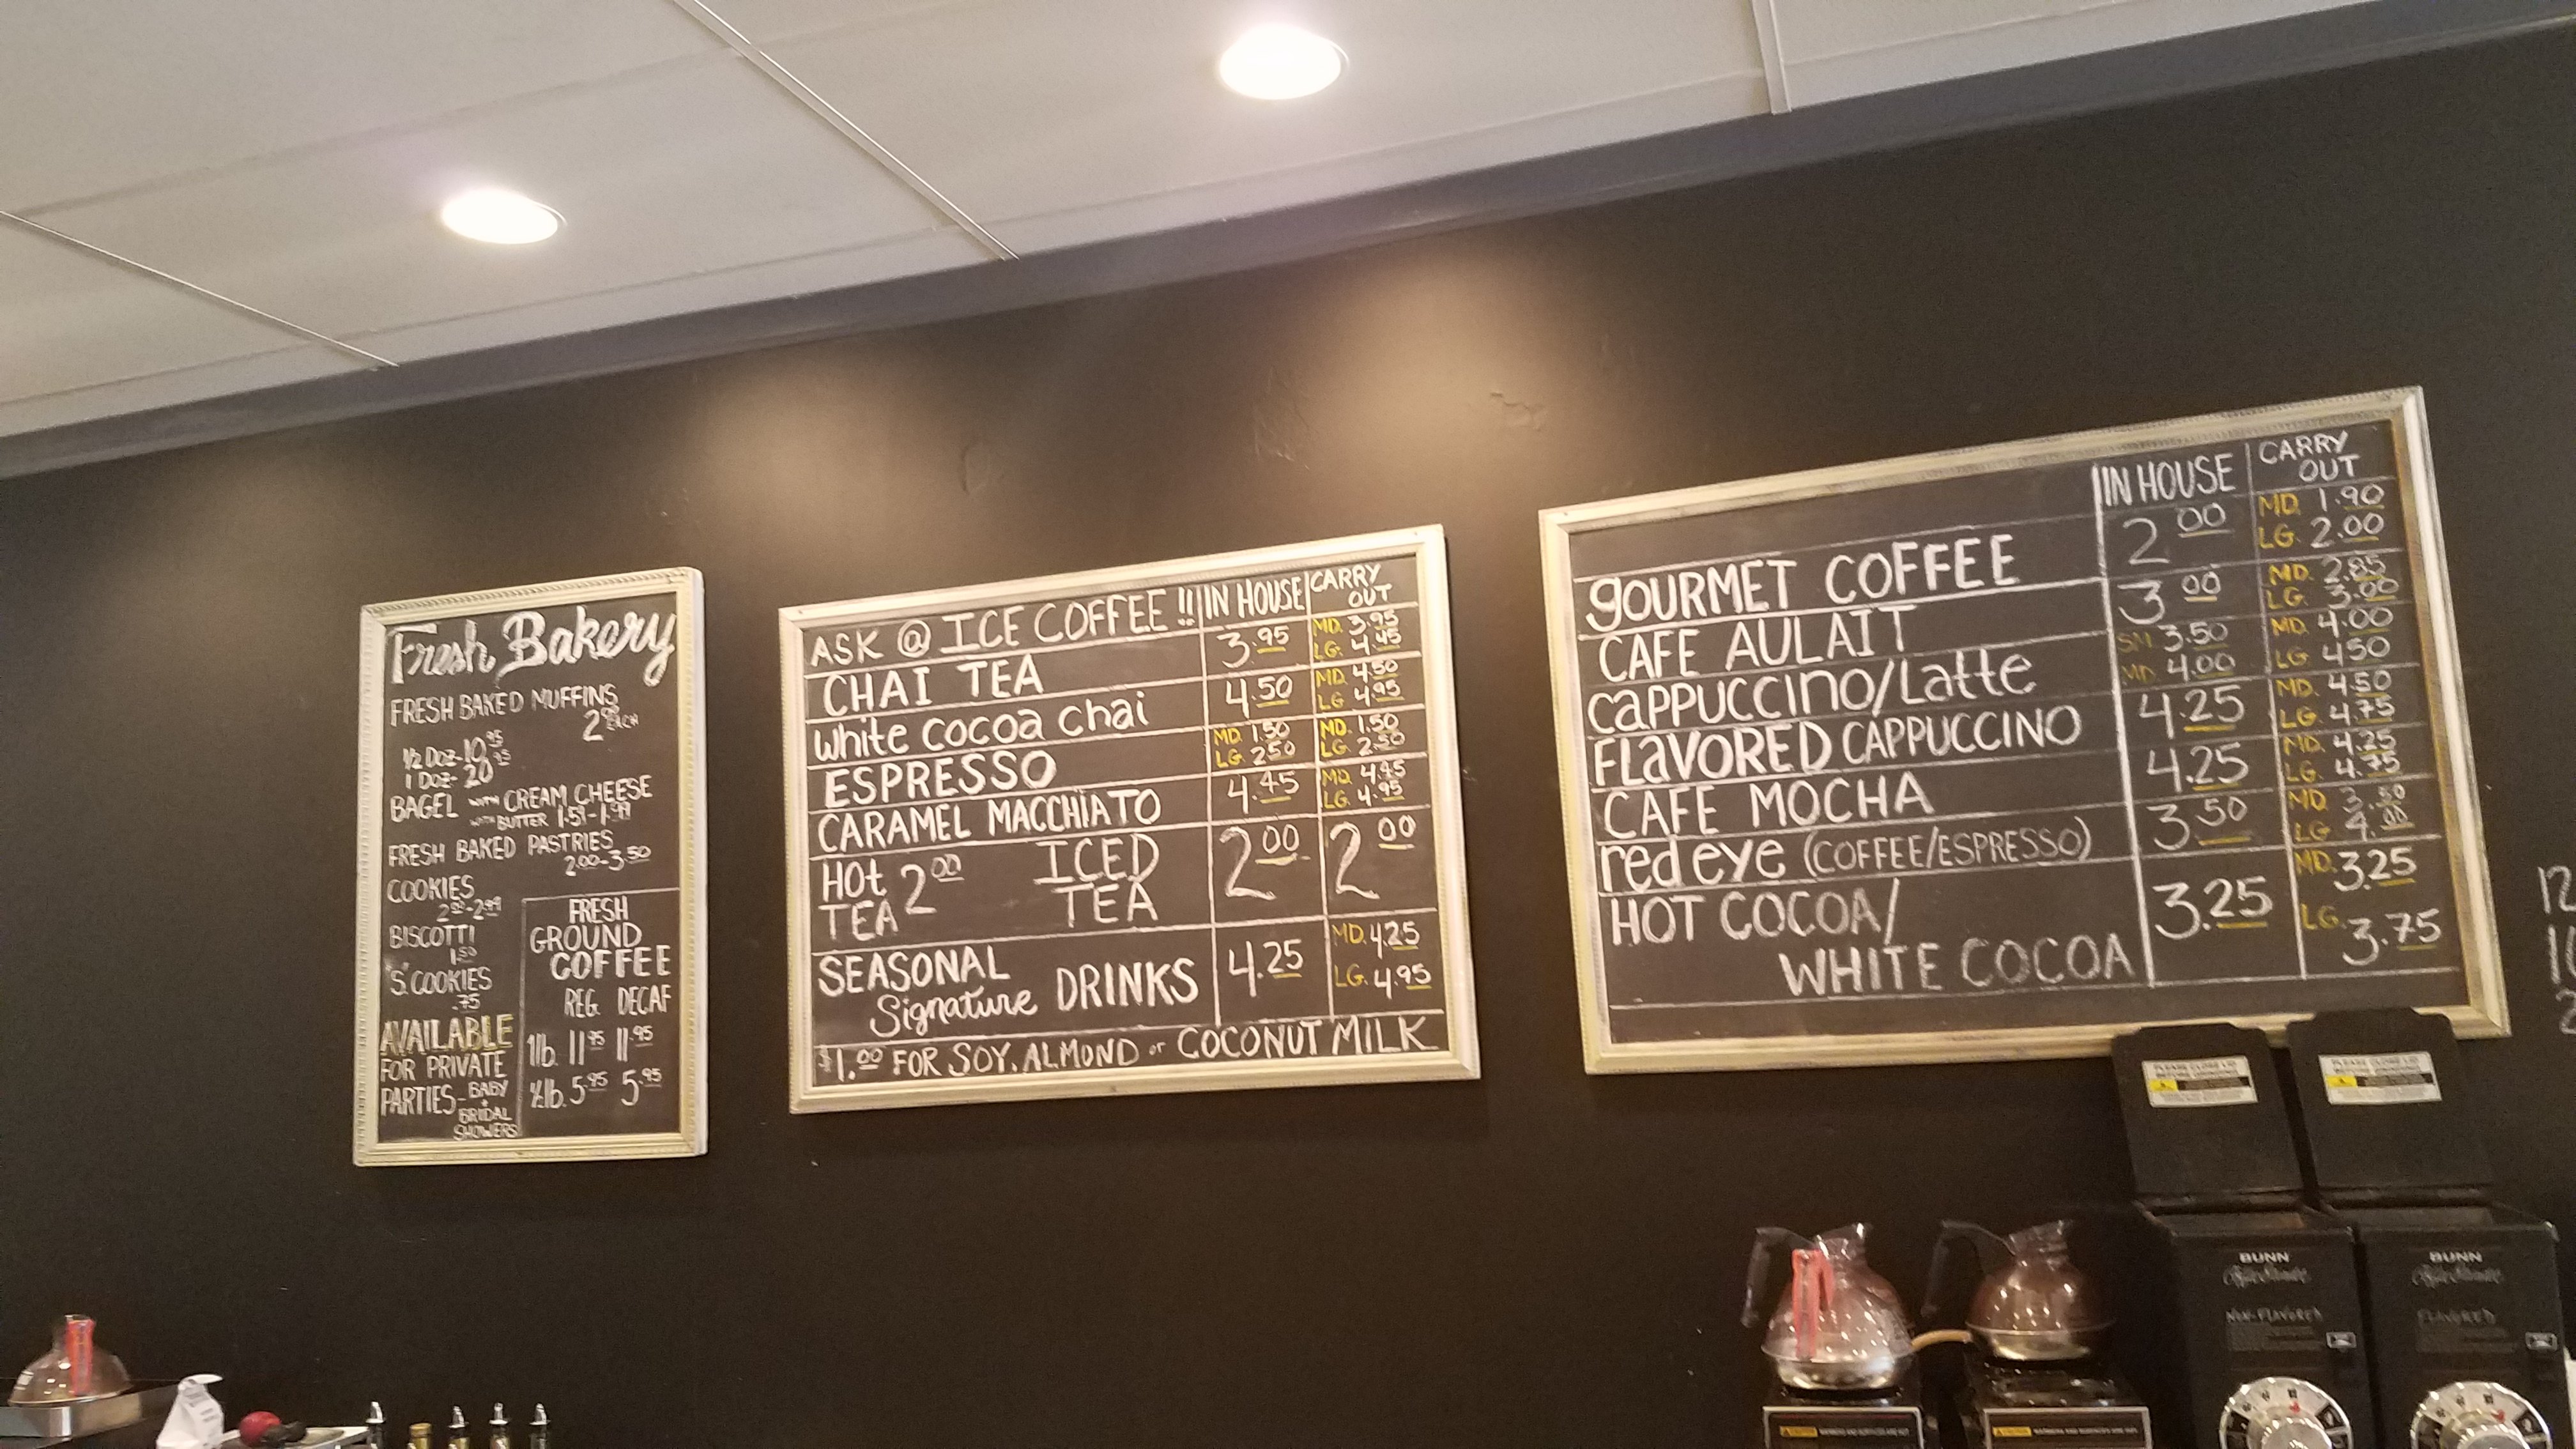 Fresh Bakery
FRESH BAKED MUFFINS
EACH
1/2 DOZ-10.95
1 DOZ-20.95
BAGEL WITH CREAM CHEESE
WITH BUTTER 1.59-1.99
FRESH BAKED PASTRIES
2.00-3.50
COOKIES
BISCOTTI
1.50
"S." COOKIES
.75
AVAILABLE
FOR PRIVATE
PARTIES- BABY
+
BRIDAL
SHOWERS
FRESH
GROUND
COFFEE
REG. DECAF
1lb. 11.95 11.95
5.95 5.95
ASK @ ICE COFFEE !! IN HOUSE CARRY OUT
CHAI TEA 3.95 MD. 3.95
LG. 4.45
white cocoa chai 4.50 MD. 4.50
LG. 4.95
ESPRESSO MD. 1.50 MD. 1.50
LG. 2.50 LG. 2.50
CARAMEL MACCHIATO 4.45 MD. 4.45
LG. 4.95
HOT TEA 2.00 ICED TEA 2.00 2.00
SEASONAL Signature DRINKS 4.25 MD. 4.25
LG. 4.95
$1.00 FOR SOY, ALMOND or COCONUT MILK
IN HOUSE CARRY OUT
gOURMET COFFEE 2.00 MD. 1.90
LG. 2.00
CAFE AULAIT 3.00 MD. 2.85
LG. 3.00
cappuccino/Latte SM. 3.50 MD. 4.00
MD. 4.00 LG. 4.50
FLavORED CAPPUCCINO 4.25 MD. 4.50
LG. 4.75
CAFE MOCHA 4.25 MD. 4.25
LG. 4.75
red eye (COFFEE/ESPRESSO) 3.50 MD. 3.50
LG. 4.00
HOT COCOA/ 3.25 MD. 3.25
WHITE COCOA LG. 3.75
PLEASE CLOSE LID
PLEASE CLOSE LID
BUNN
NON-FLAVORED
BUNN
FLAVORED